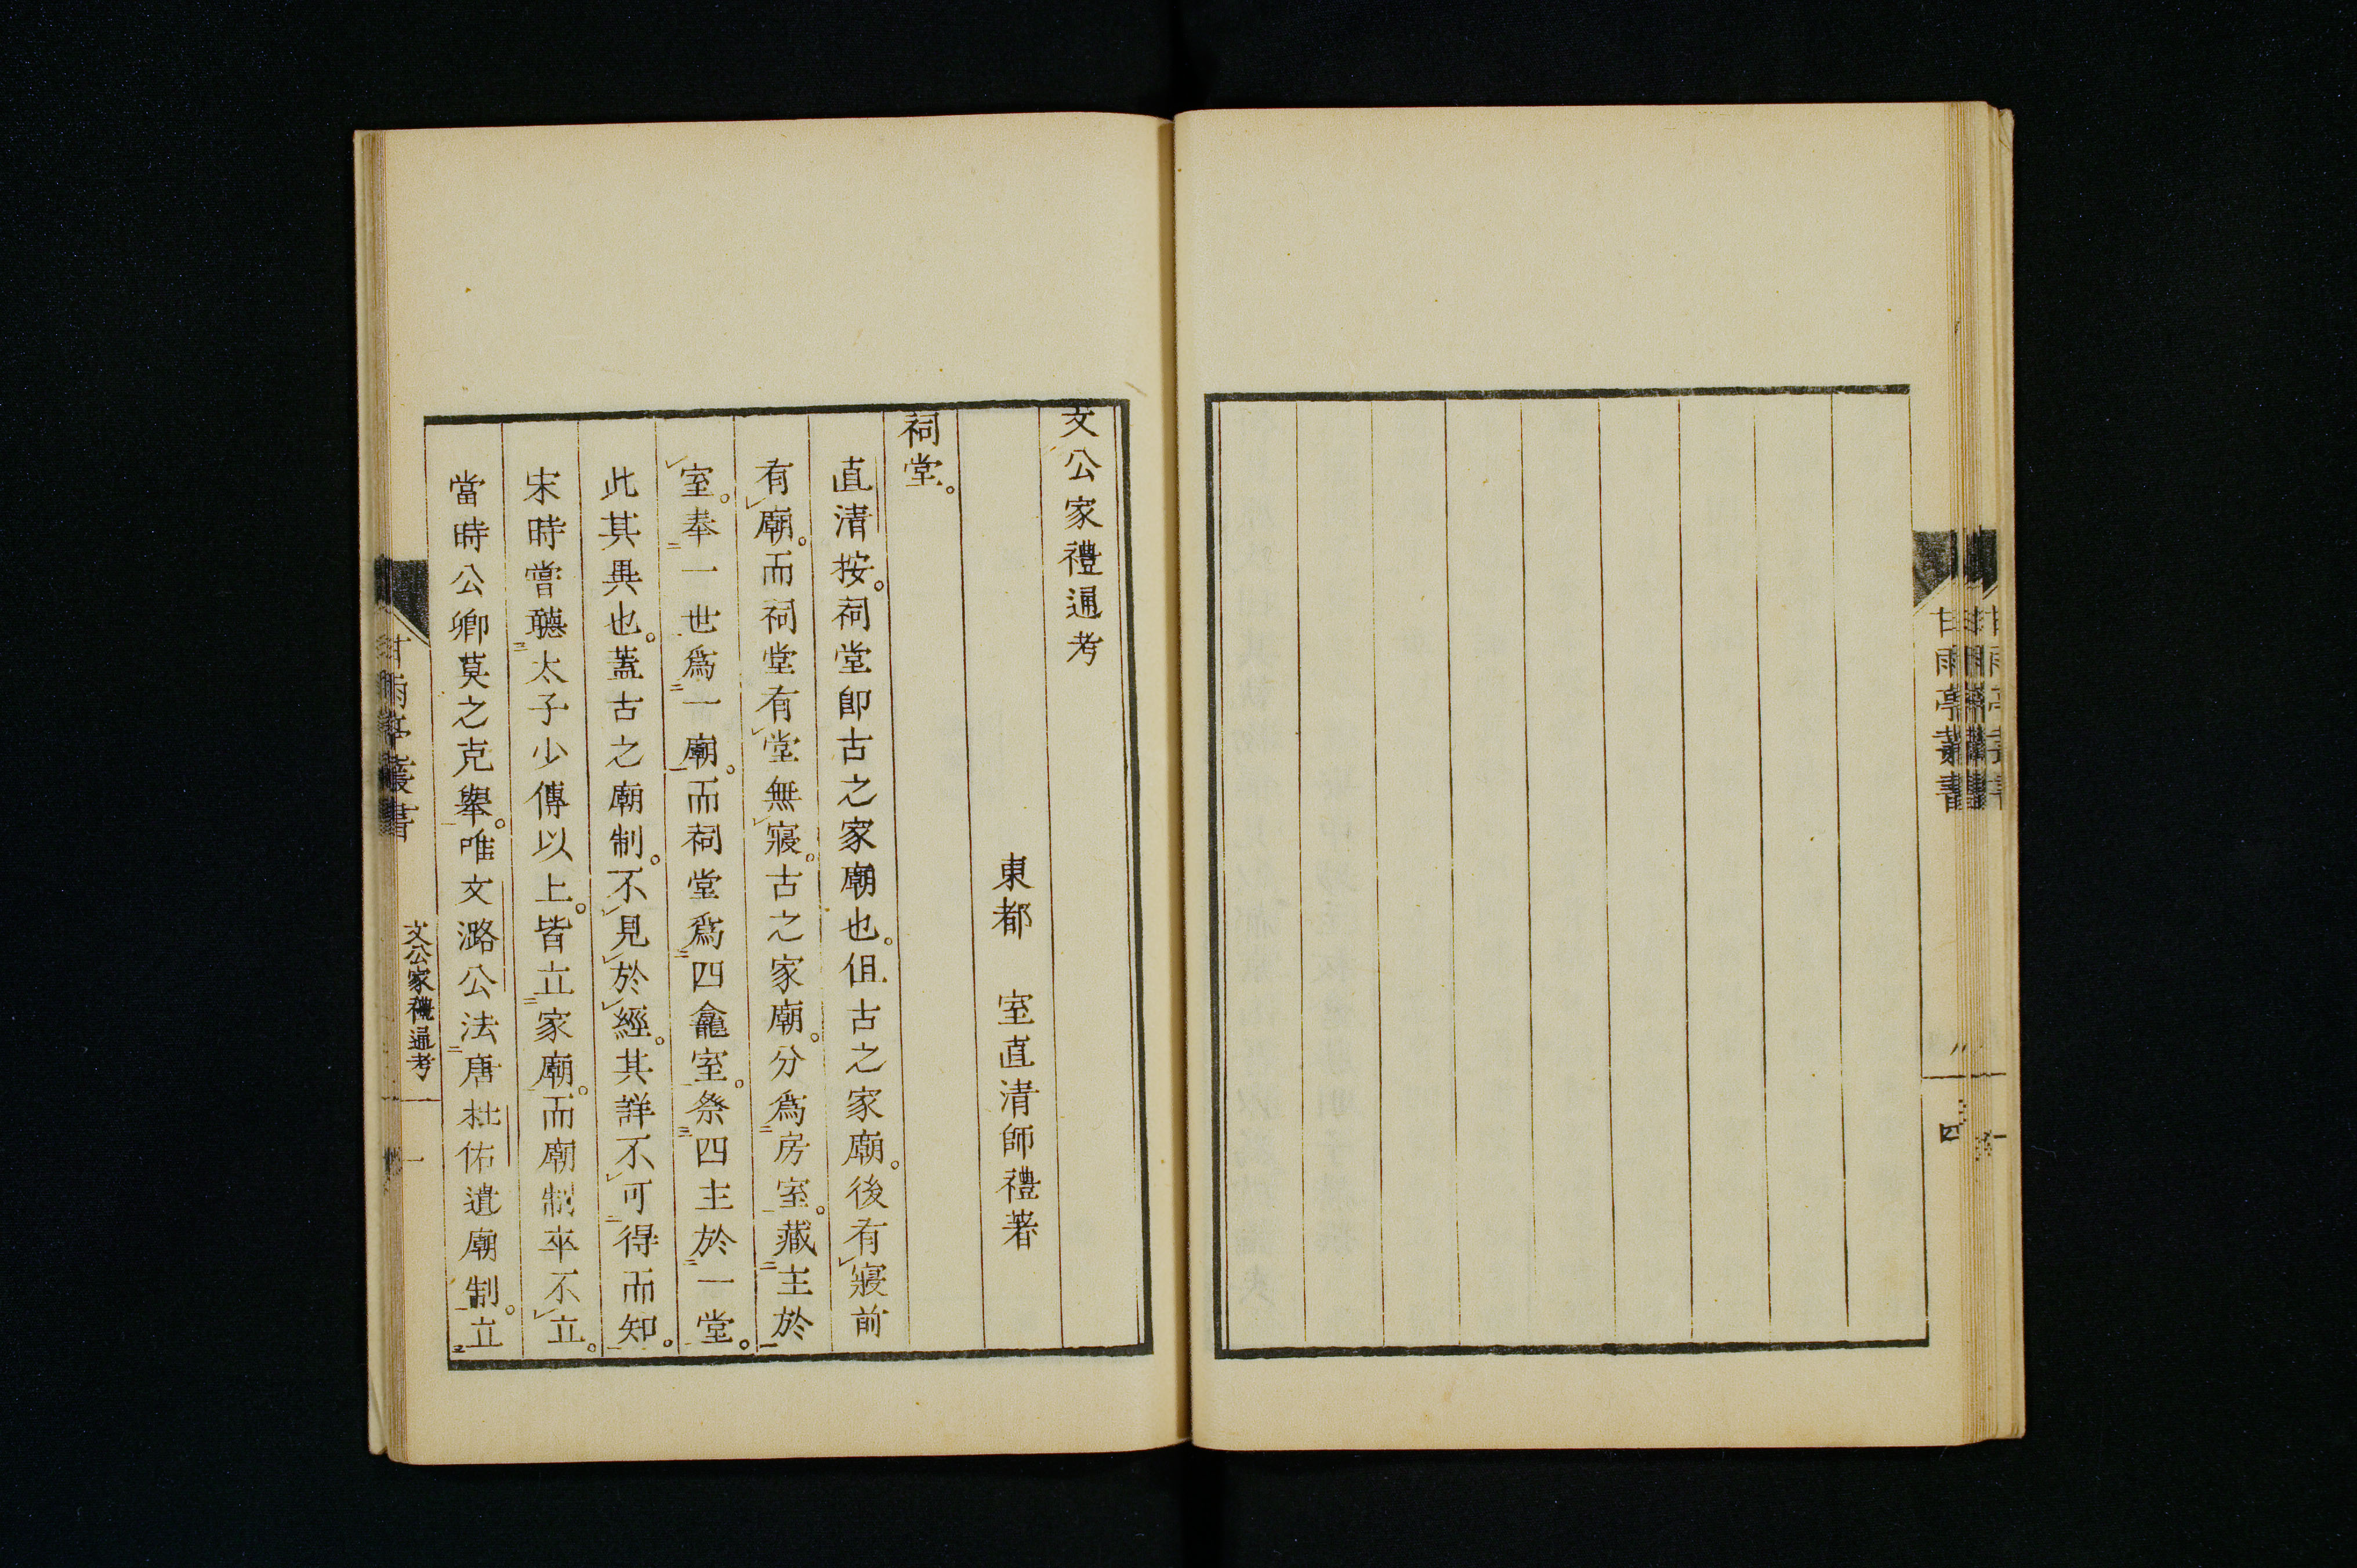 甘雨亭叢書
四
文公家禮通考
東都 室直清師禮著
祠堂。
直清按。祠堂卽古之家廟也。但古之家廟。後有寢前
有廟。而祠堂有堂無寢。古之家廟。分爲房室。藏主於
室。奉一世爲一廟。而祠堂爲四龕室。祭四主於一堂。
此其異也。蓋古之廟制。不見於經。其詳不可得而知。
宋時嘗聽太子少傅以上。皆立家廟。而廟制卒不立。
當時公卿莫之克舉。唯文潞公法唐杜佑遺廟制。立
甘雨亭叢書
文公家禮通考
一